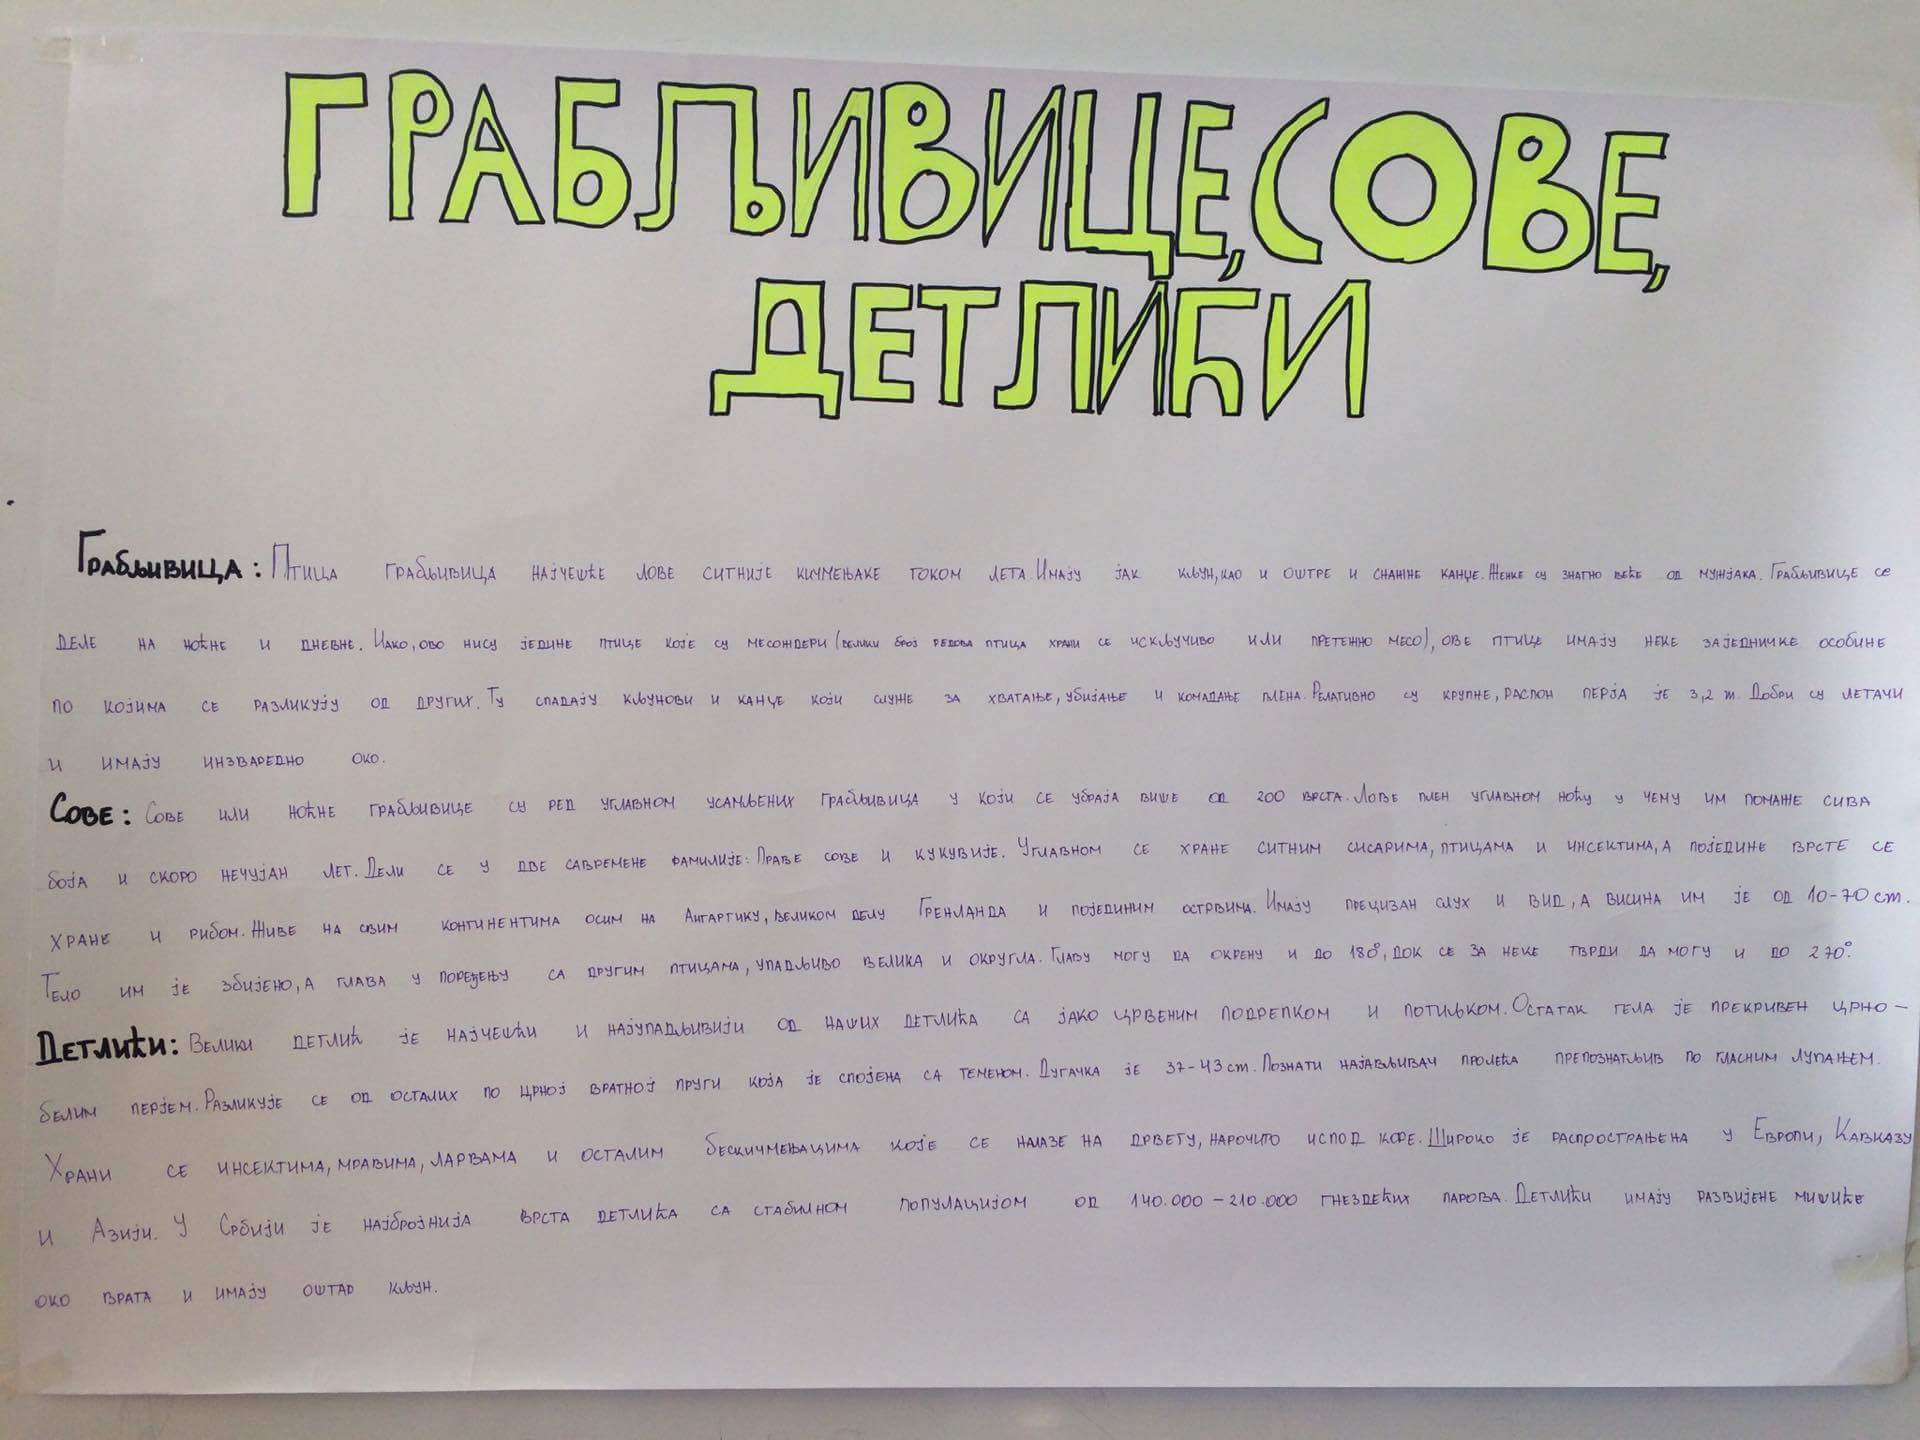 ГРАБЉИВИЦЕ, СОВЕ,
ДЕТЛИЋИ
Грабљивица: Птица грабљивица најчешће лове ситније кичмењаке током лета. Имају јак кљун, као и оштре и снажне канџе. Женке су знатно веће од мужјака. Грабљивице се
деле на ноћне и дневне. Иако, ово нису једине птице које су месождери (велики број редова птица храни се искључиво или претежно месо), ове птице имају неке заједничке особине
по којима се разликују од других. Ту спадају кљунови и канџе који служе за хватање, убијање и комадање плена. Релативно су крупне, распон перја је 3,2 m. Добри су летачи
и имају инзваредно око.
Сове: Сове или ноћне грабљивице су ред углавном усамљених грабљивица у који се убраја више од 200 врста. Лове плен углавном ноћу у чему им помаже сива
боја и скоро нечујан лет. Дели се у две савремене фамилије: Праве сове и кукувије. Углавном се хране ситним сисарима, птицама и инсектима, а поједине врсте се
хране и рибом. Живе на свим континентима осим на Антартику, великом делу Гренланда и појединим острвима. Имају прецизан слух и вид, а висина им је од 10-70 cm.
Тело им је збијено, а глава у поређењу са другим птицама, упадљиво велика и округла. Главу могу да окрену и до 180°, док се за неке тврди да могу и до 270°.
Детлићи: Велики детлић је најчешћи и најупадљивији од наших детлића са јако црвеним подрепком и потиљком. Остатак тела је прекривен црно-
белим перјем. Разликује се од осталих по црној вратној пруги која је спојена са теменом. Дугачка је 37-43 cm. Познати најављивач пролећа препознатљив по гласним лупањем.
Храни се инсектима, мравима, ларвама и осталим бескичмењацима које се налазе на дрвету, нарочито испод коре. Широко је распрострањена у Европи, Кавказу
и Азији. У Србији је најбројнија врста детлића са стабилном популацијом од 140.000-210.000 гнездећих парова. Детлићи имају развијене мишиће
око врата и имају оштар кљун.